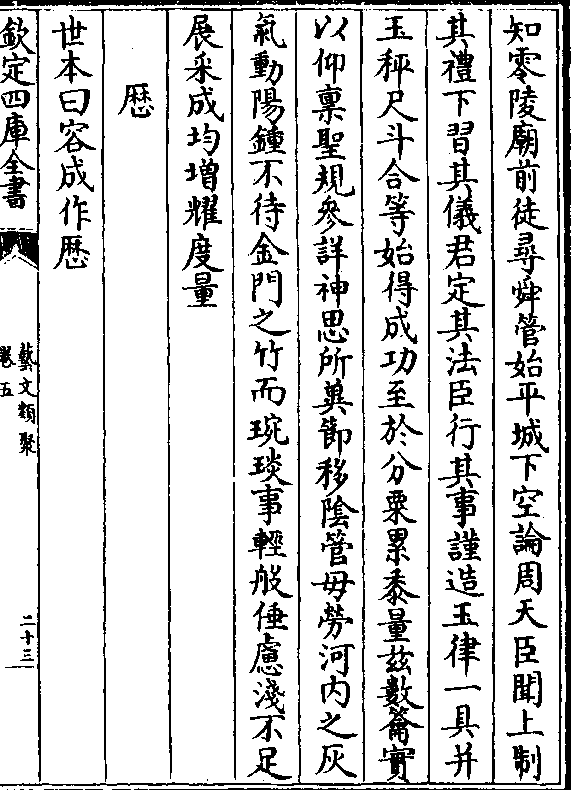 知零陵廟前徒尋舜管始平城下空論周天臣聞上制
其禮下習其儀君定其法臣行其事謹造玉律一具并
玉秤尺斗合等始得成功至於分粟累黍量茲數籥實
以仰稟聖規參詳神思所兾節移陰管毋勞河内之灰
氣動陽鐘不待金門之竹而琬琰事輕般倕慮淺不足
展采成均増耀度量
厯
世本曰容成作厯
欽定四庫全書
藝文類聚
卷五
二十三